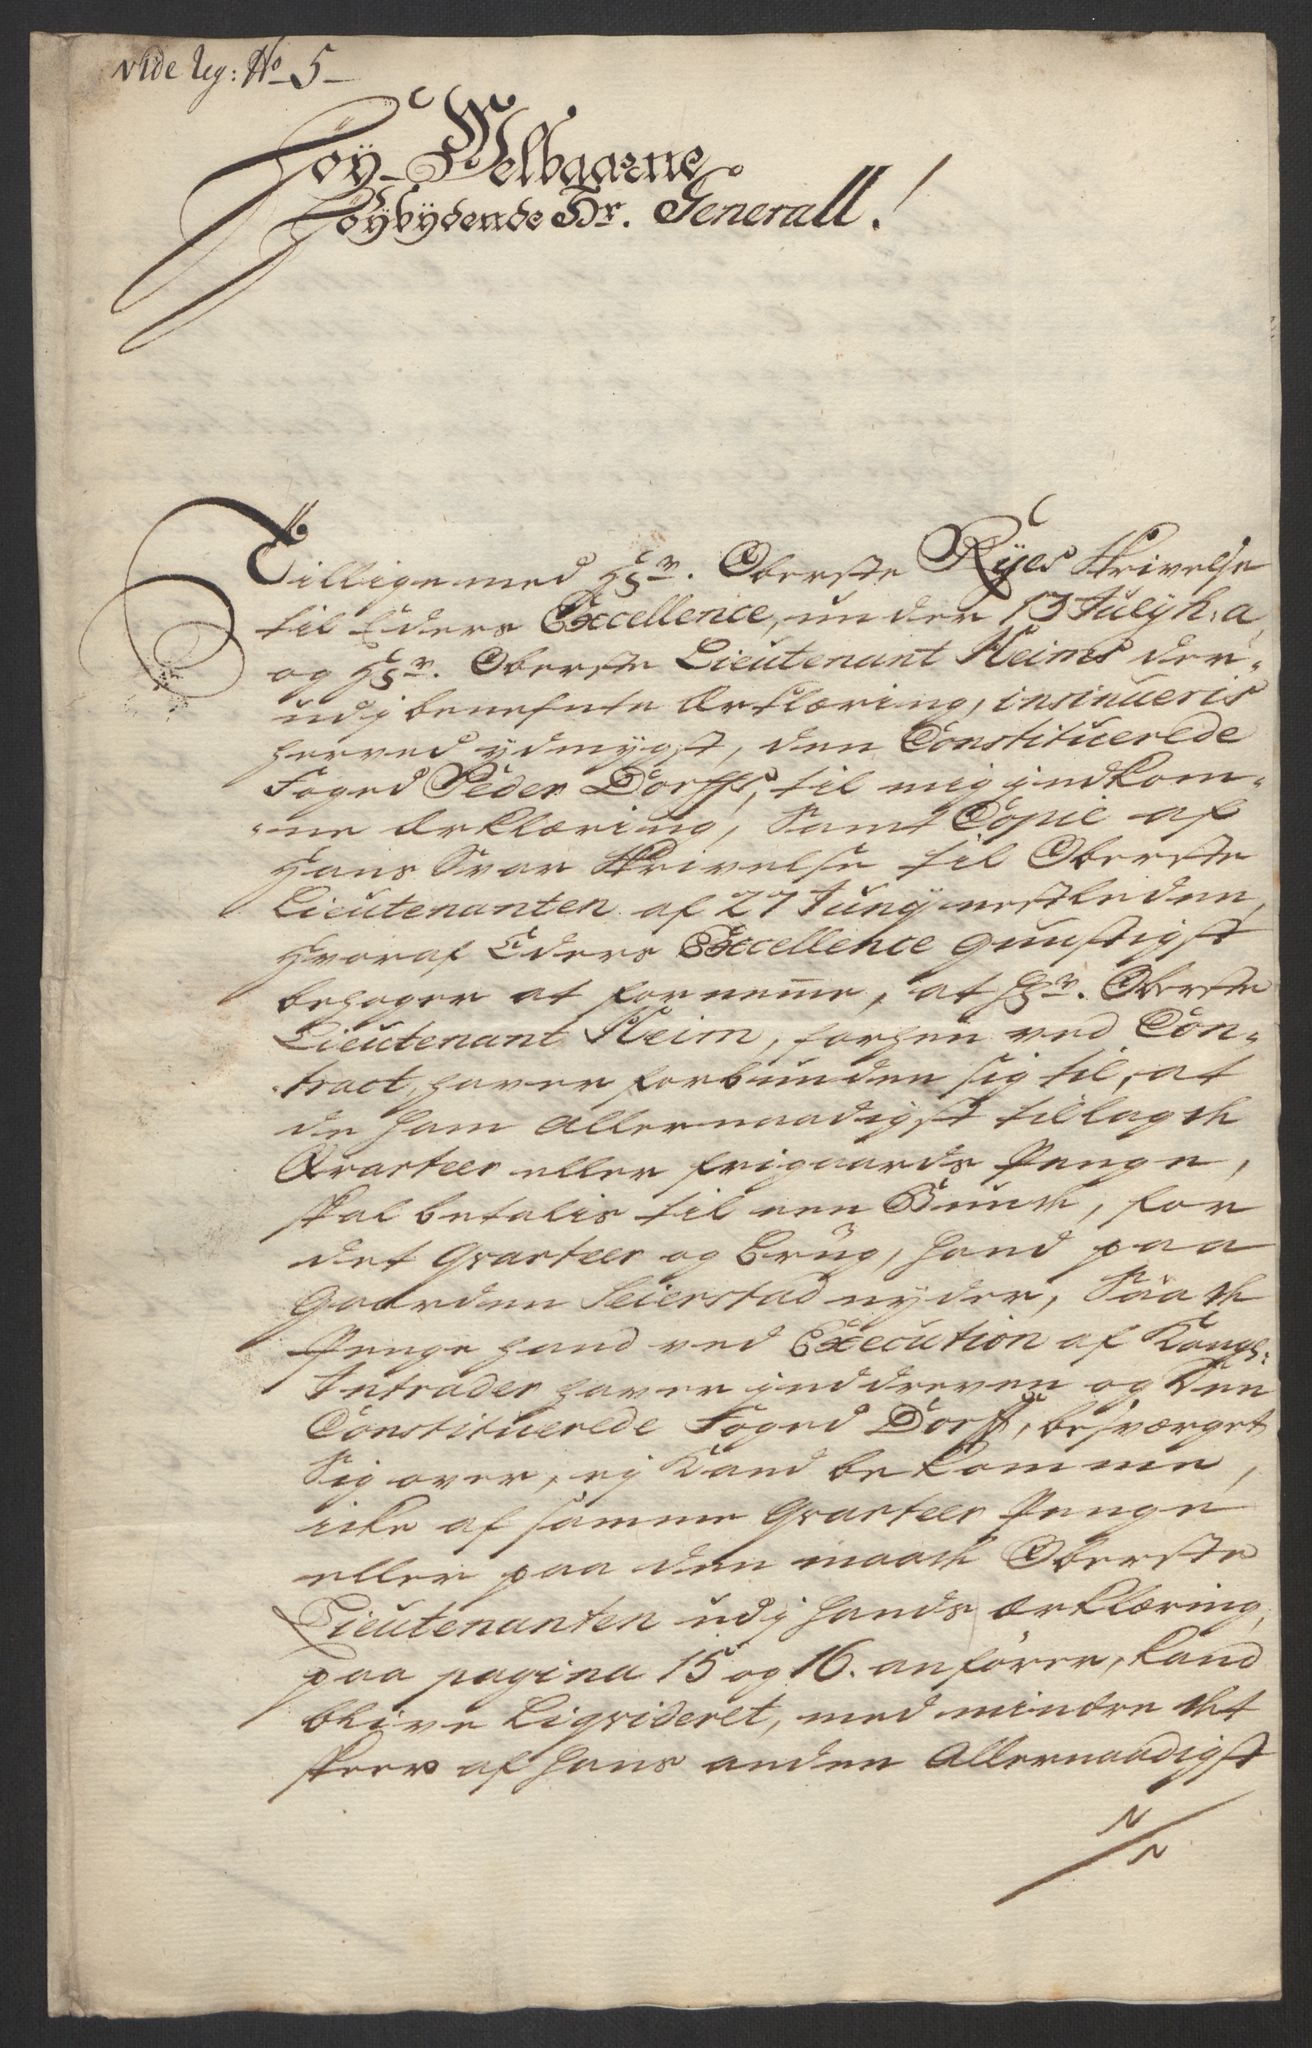 vide leg: No 5
Høy-Welbaarne
Høybydende Hr. Generall!
Tillige med Hr. Oberste Ryes Skrivelse
til Eders Excellence, under 13 July h: a
og Hr. Oberste Lieutenant Heims der-
udj benefnte Ærklæring, insinueris
herved ydmygst, den Constituerede
Foged Peder Dorffs, til mig indkom-
-ne Ærklæring, samt Copie af
hans Svar Skrivelse til Oberste
Lieutenanten af 27 Juny nestleden,
hvoraf Eders Excellence gunstigst
behager at fornemme, at Hr. Oberste
Lieutenant Heim, forhen ved Con-
-tract, haver forbunden sig til, at
de ham allernaadigst tillagde
Qvarteer eller frigaards Penge,
skal betalis til een Bunde, for
det Qvarteer og Brug, hand paa
Gaarden Seierstad nyder, saa de
Penge hand ved Execution af Kongl:
Intrader haver inddreven og den
Constituerede Foged Dorff, besværget
sig over, ej kand bekomme,
icke af samme Qvarteer Penge
eller paa den maade Oberste
Lieutenanten udj hands ærklæring,
paa pagina 15 og 16. anfører, kand
blive Liqvideret, med mindre det
skeer af hans anden Allernaadigst